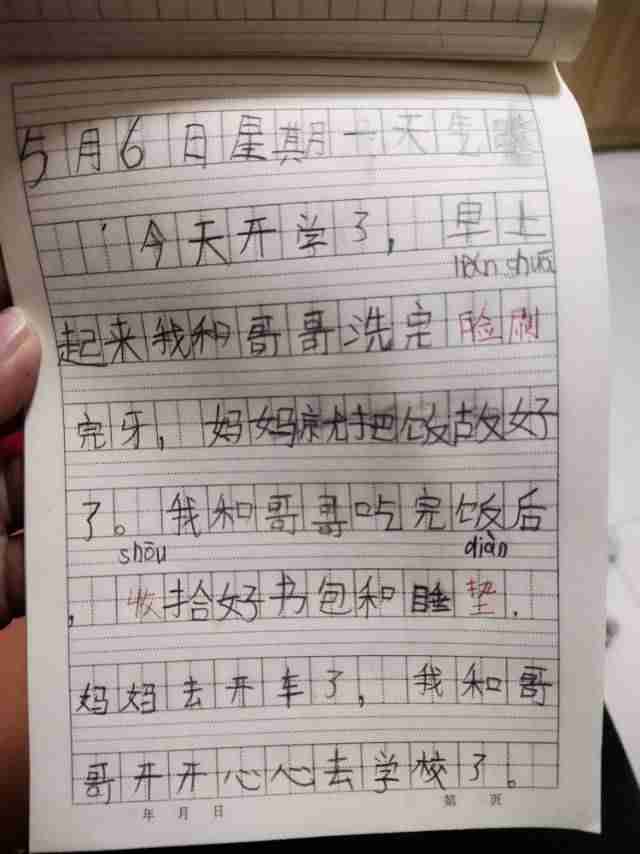 5月6日星期一天气
今天开学了，早上
liǎn shuā
起来我和哥哥洗完脸刷
完牙，妈妈就把饭故好
了。我和哥哥吃完饭后
shōu diàn
，收拾好书包和睡垫．
妈妈去开车了，我和哥
哥开开心心去学校了。
年 月 日 第 页